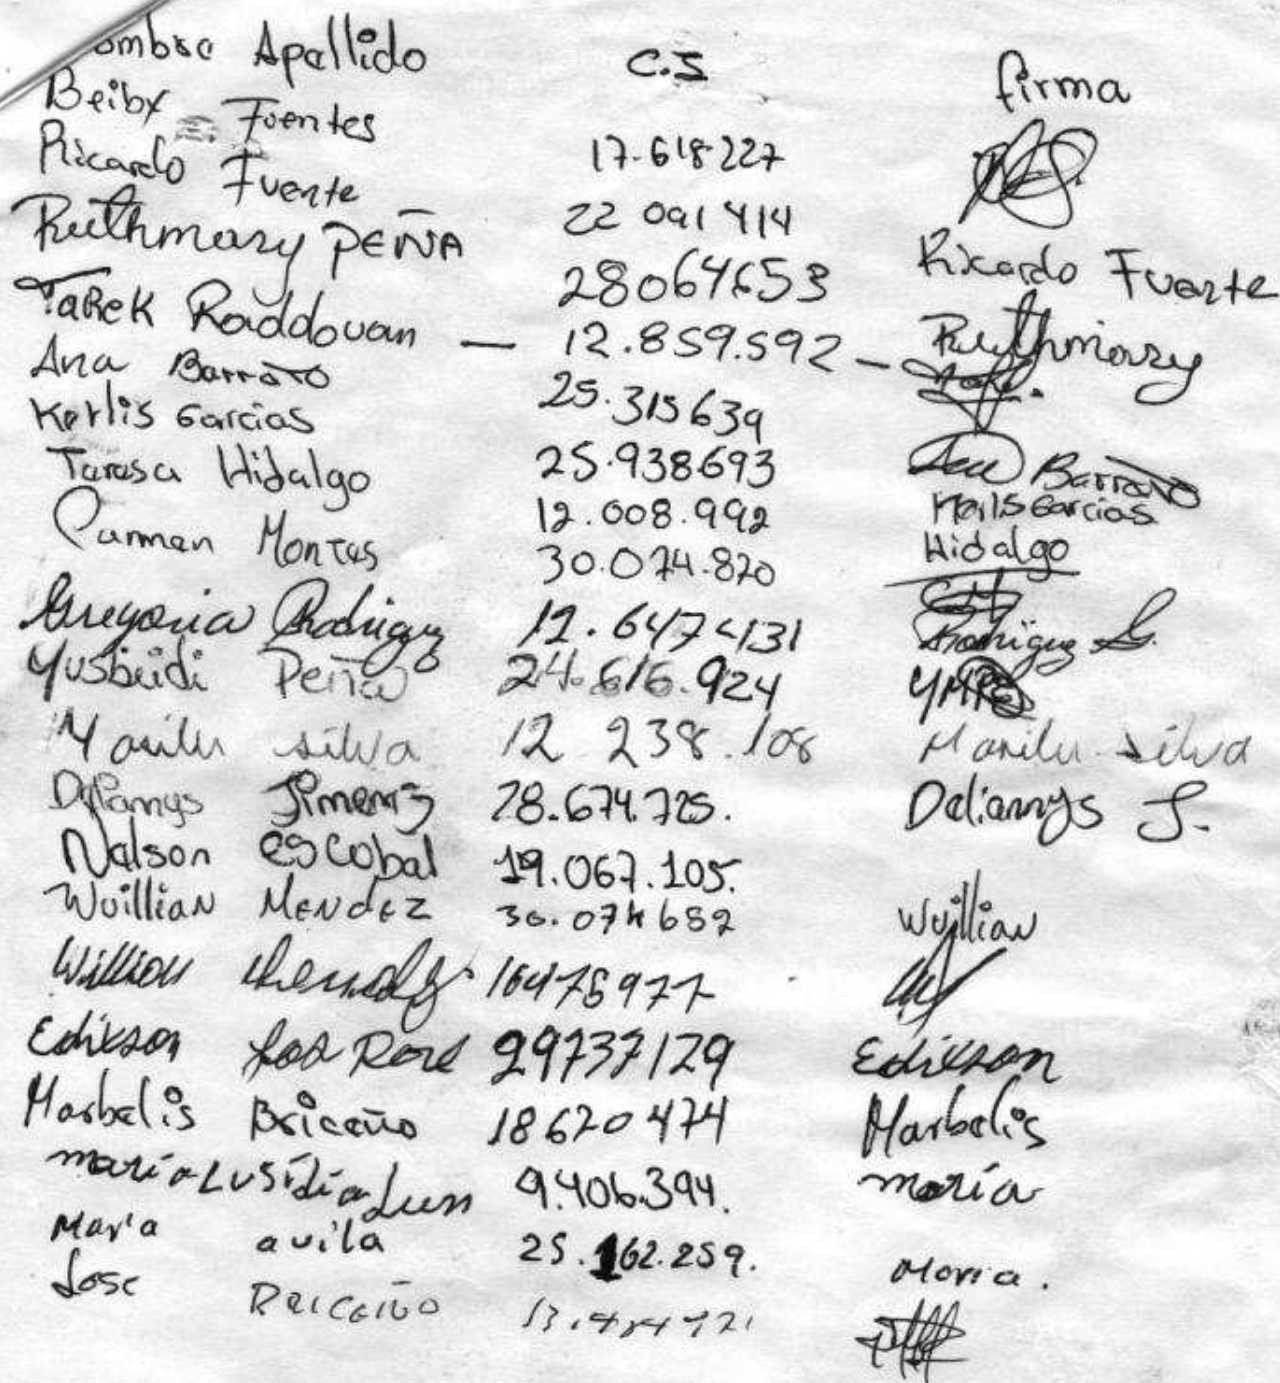 ombre Apellido C.I firma
Beiby Fuentes 17.618227
Ricardo Fuente 22 091 414 Ricardo Fuente
Ruthmary PEÑA 28064653 Ruthmary
TaReK Raddouan — 12.859.592 —
Ana Barroto 25.315639 Ana Barroto
Kerlis Garcias 25.938693 Kerlis Garcias
Teresa Hidalgo 12.008.992 Hidalgo
Carmen Montes 30.074.820
Gregoria Rodriguez 12.647.131 Rodriguez G.
Yusbeidi Peña 24.616.924
Marilu silva 12 238.108 Marilu silva
Jimenez 28.674.725. Delianys J.
Nelson escobal 19.067.105.
WuilliaN MENdEZ 30.074652 Wuillian
16475977
Edikson 29737129 Edikson
Marbelis Briceño 18620474 Marbelis
maria Lusidia 9.406.394. maria
Maria avila 25.162.259. Maria.
Jose Briceño